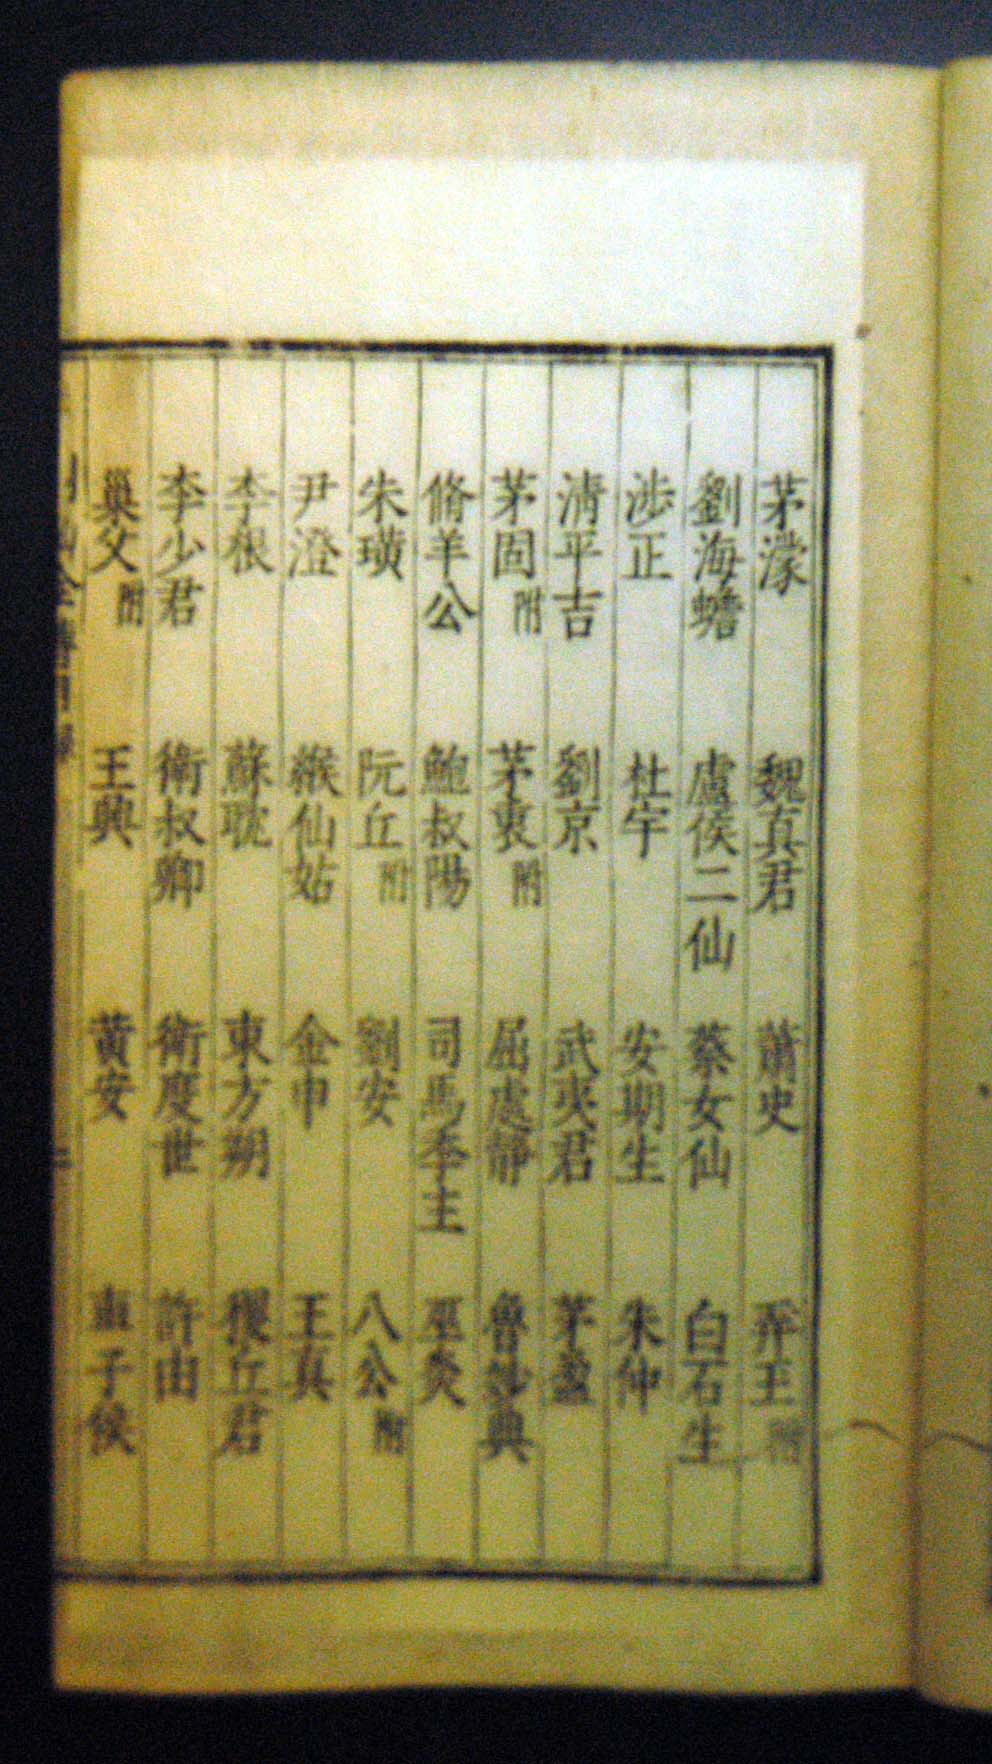 茅濛 魏真君 蕭史 弄玉附
劉海蟾 盧侯二仙 蔡女仙 白石生
涉正 杜宇 安期生 朱仲
清平吉 劉京 武夷君 茅盈
茅固附 茅衷附 屈處靜 魯妙典
脩羊公 鮑叔陽 司馬季主 巫炎
朱璜 阮丘附 劉安 八公附
尹澄 緱仙姑 金申 王真
李根 蘇耽 東方朔 稷丘君
李少君 衛叔卿 衛度世 許由
巢父附 王興 黃安 車子侯
列仙全傳目錄